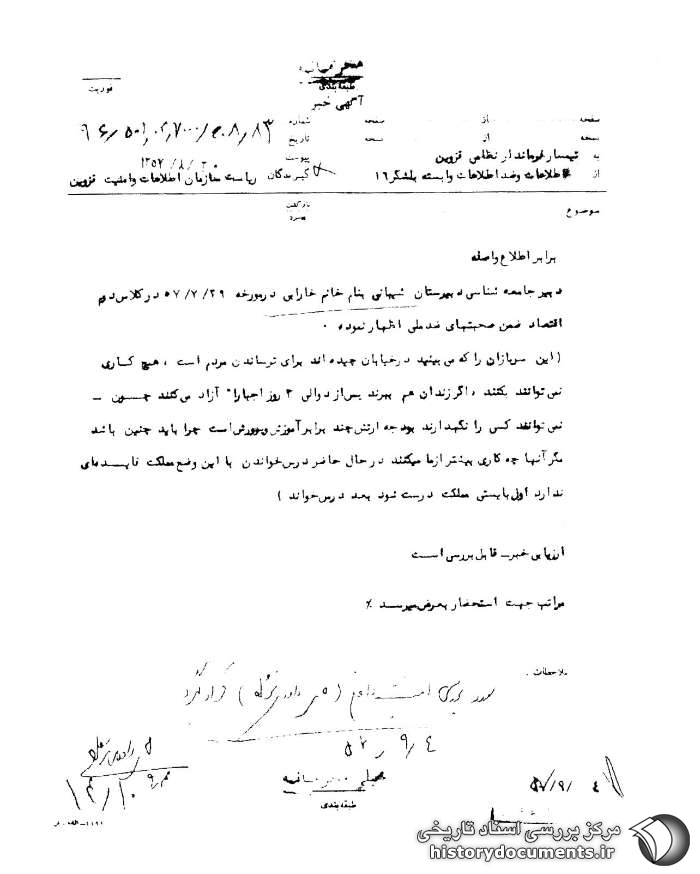 محرمانه
طبقه بندی
آگهی خبر
فوریت
صفحه از صفحه
نسخه از نسخه
شماره
تاریخ ۱۳۵۷/۸/۲۰
پیوست
به تیمسار فرماندار نظامی قزوین
گیرندگان ریاست سازمان اطلاعات و امنیت قزوین
از اطلاعات و ضد اطلاعات وابسته بلشگر ۱۶
بازگشت
موضوع
برابر اطلاع واصله
دبیر جامعه شناسی دبیرستان شیبانی بنام خانم خارابی درمورخه ۵۷/۷/۲۹ در کلاس دوم
اقتصاد ضمن صحبتهای ضد ملی اظهار نموده .
(این سربازان را که می بینید درخیابان چیده اند برای ترساندن مردم است ، هیچ کاری
نمی توانند بکنند ، اگر زندان هم ببرند پس از دوالی ۳ روز اجبارا" آزاد می کنند چون ــ
نمی توانند کسی را نگهدارند بودجه ارتش چند برابر آموزش و پرورش است چرا باید چنین باشد
مگر آنها چه کاری بیشتر از ما میکنند در حال حاضر درس خواندن با این وضع مملکت فایده ای
ندارد اول بایستی مملکت درست شود بعد درس خواند )
ارزیابی خبر ــ قابل بررسی است
مراتب جهت استحضار بعرض میرسد ٪
ملاحظات .
۵۷/۹/۴
۵۷/۹/۴
خیلی محرمانه
طبقه بندی
مرکز بررسی اسناد تاریخی
historydocuments.ir